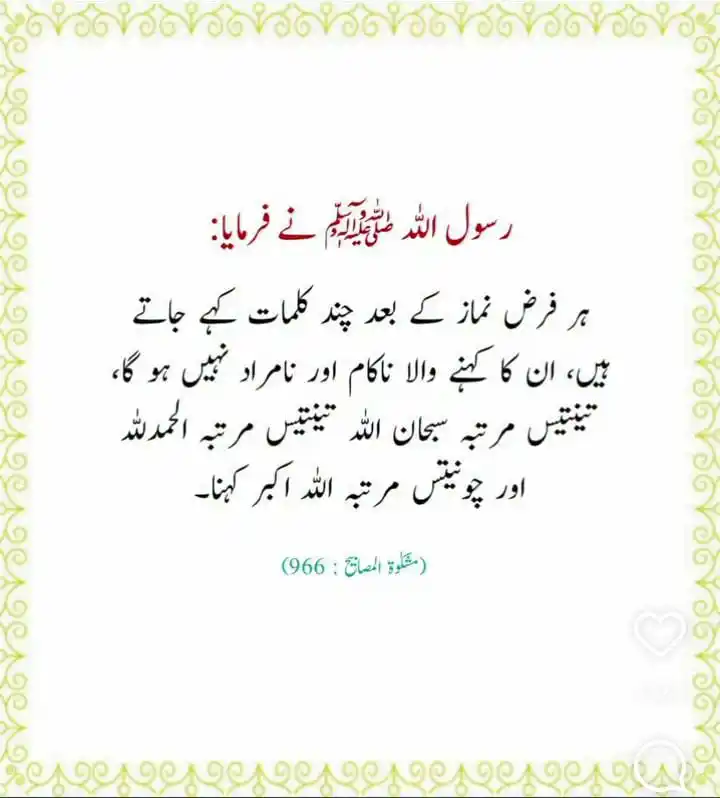 رسول اللہ ﷺ نے فرمایا:
ہر فرض نماز کے بعد چند کلمات کہے جاتے
ہیں، ان کا کہنے والا ناکام اور نامراد نہیں ہو گا،
تینتیس مرتبہ سبحان اللہ تینتیس مرتبہ الحمدللہ
اور چونیتس مرتبہ اللہ اکبر کہنا۔
(مشکوۃ المصابیح : 966)